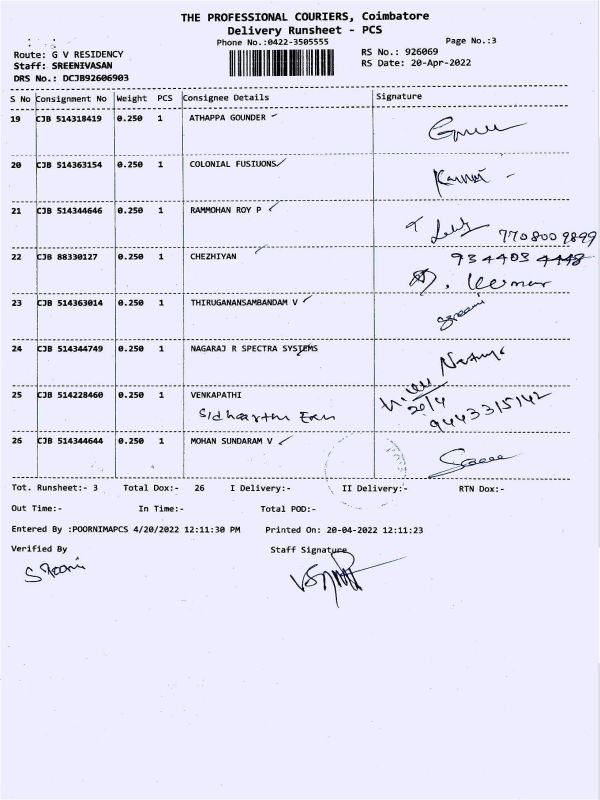 THE PROFESSIONAL COURIERS, Coimbatore
Delivery Runsheet - PCS
Phone No.:0422-3505555
Page No.:3
Route: G V RESIDENCY
RS No.: 926069
Staff: SREENIVASAN
RS Date: 20-Apr-2022
DRS No.: DCJB92606903
S No Consignment No Weight PCS Consignee Details Signature
19 CJB 514318419 0.250 1 ATHAPPA GOUNDER
20 CJB 514363154 0.250 1 COLONIAL FUSIUONS
21 CJB 514344646 0.250 1 RAMMOHAN ROY P
7708009899
22 CJB 88330127 0.250 1 CHEZHIYAN
9344034448
23 CJB 514363014 0.250 1 THIRUGANANSAMBANDAM V
24 CJB 514344749 0.250 1 NAGARAJ R SPECTRA SYSTEMS
25 CJB 514228460 0.250 1 VENKAPATHI
20/4
9443315142
26 CJB 514344644 0.250 1 MOHAN SUNDARAM V
Tot. Runsheet:- 3 Total Dox:- 26 I Delivery:- II Delivery:- RTN Dox:-
Out Time:- In Time:- Total POD:-
Entered By :POORNIMAPCS 4/20/2022 12:11:30 PM Printed On: 20-04-2022 12:11:23
Verified By Staff Signature